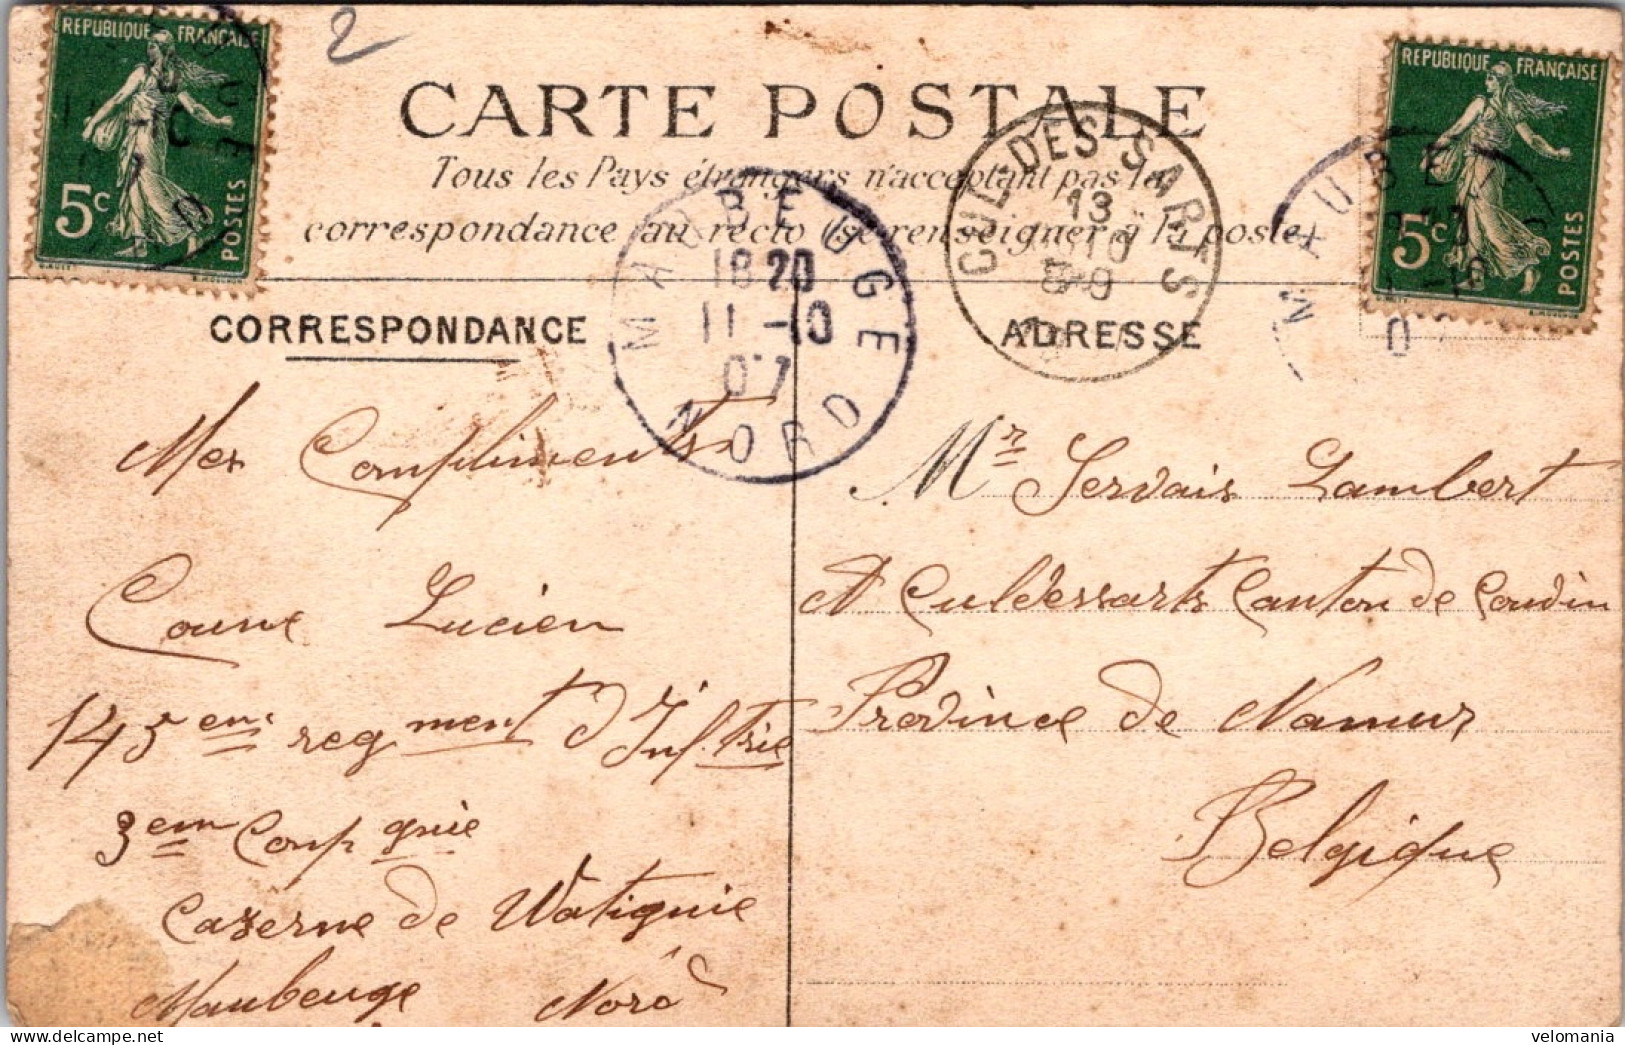 2
REPUBLIQUE FRANÇAISE
5c
POSTES
REPUBLIQUE FRANÇAISE
5c
POSTES
CARTE POSTALE
Tous les Pays étrangers n'acceptant pas la
correspondance au recto (se renseigner à la poste)
MAUBEUGE
18 20
11 -10
07
NORD
CUL-DES-SARTS
13
10
8-9
MAUBEU
CORRESPONDANCE
ADRESSE
Mes Compliments
Lucien
145eme regment d'Inf.trie
3em Compgnie
Cazerne de Watignie
Maubeuge Nord
Mr Servais Lambert
A Culdessarts Canton de Couvin
Province de Namur
Belgique
velomania